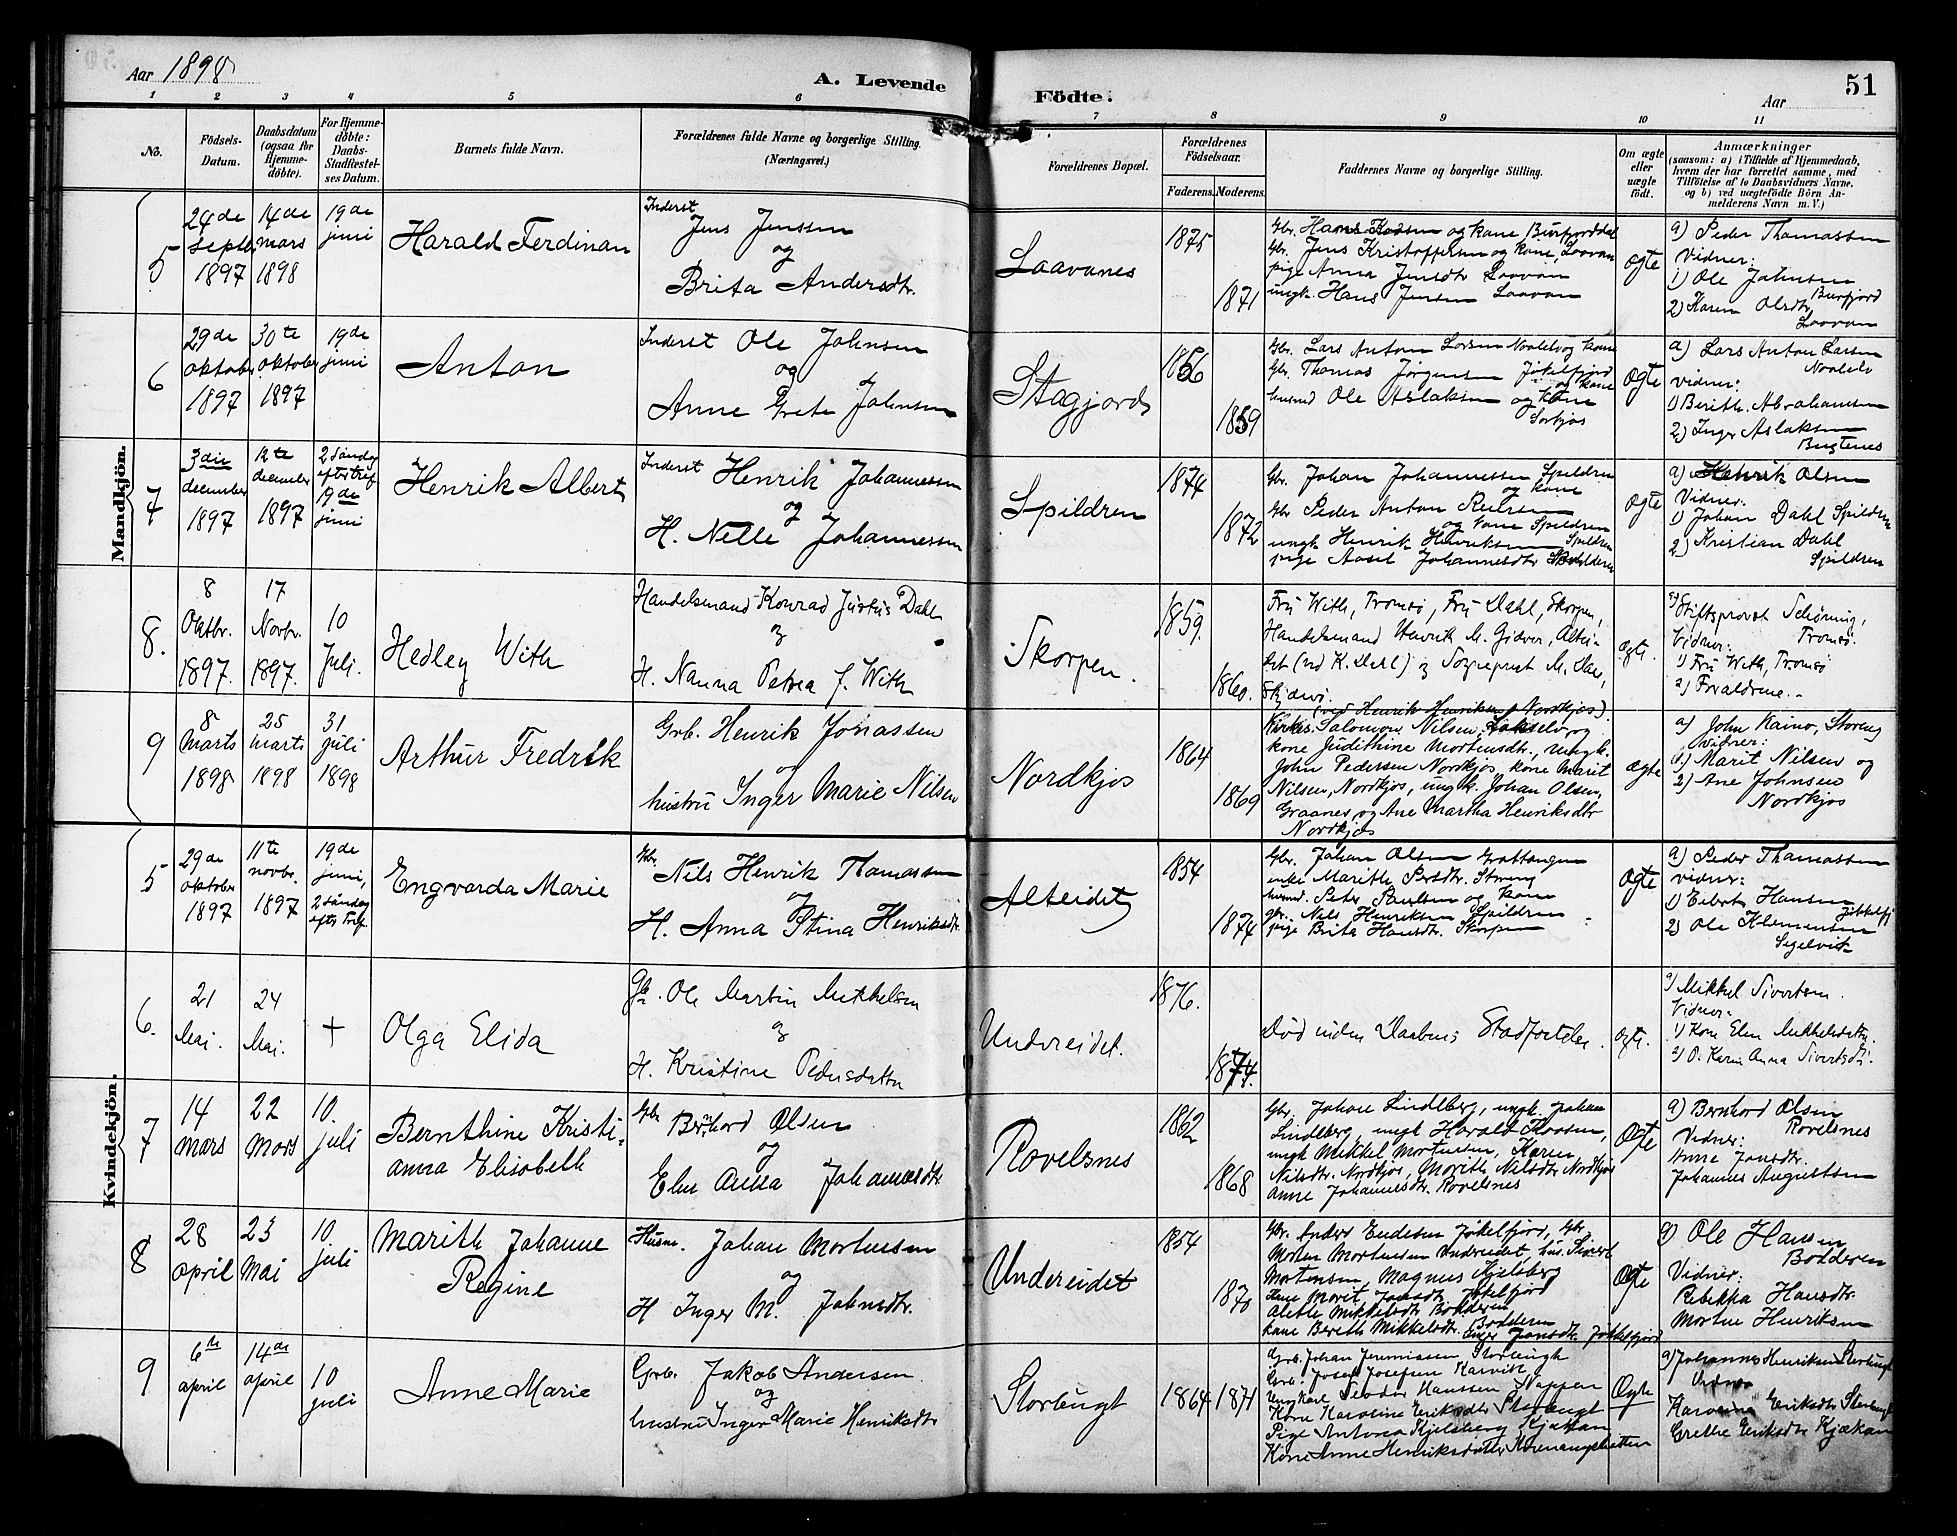 Aar 1898
A. Levende
Födte.
Aar
51
1 2 3 4 5 6 7 8 9 10 11
No.
Födsels-
Datum.
Daabsdatum
(ogsaa for
Hjemme-
döbte).
For Hjemme-
döbte:
Daabs-
Stadfæstel-
ses Datum.
Barnets fulde Navn.
Forældrenes fulde Navne og borgerlige Stilling.
(Næringsvei.)
Forældrenes Bopæl.
Forældrenes
Födselsaar.
Faderens. Moderens.
Faddernes Navne og borgerlige Stilling.
Om ægte
eller
uægte
födt.
Anmærkninger
(saasom: a) i Tilfælde af Hjemmedaab,
hvem der har forrettet samme, med
Tilföielse af to Daabsvidners Navne,
og b) ved uægtefödte Börn An-
melderens Navn m. V.)
Mandkjön.
5
24de
septbr
1897
14de
mars
1898
19de
juni
Harald Ferdinan
Inderst
Jens Jenssen
og
Brita Andersdtr.
Laavanes
1875
1871
Gbr. Hans Kaasen og kone Burfjorddal
Gbr. Jens Kristoffersen og kone, Laavan
pige Anna Jensdtr Laavan
ungk. Hans Jensen Laavan
ogte
a) Peder Thomassen
Vidner:
1) Ole Johnsen
Burfjord
2) Karen Olsdtr
Laavan
6
29de
oktober
1897
30te
oktober
1897
19de
juni
Anton
Inderst Ole Johnsen
og
Anne Grete Johnsen
Stagjords
1856
1859
Gbr. Lars Anton Larsen Naalelv og kone
Gbr. Thomas Jørgensen Jøkelfjord
og kone
husmd Ole Aslaksen og kone
Sørkjos
ogte
a) Lars Anton Larsen
Naalelv
vidner:
1) Berith. Abrahamsen
2) Inger Aslaksen
Bugtenes
7
3die
december
1897
12te
december
1897
2 Søndag
efter tref
19de
juni
Henrik Albert
Inderst Henrik Johannessen
og
H. Nelle Johannessen
Spildren
1874
1872
Gbr. Johan Johannessen Spildren
og kone
Gbr Peder Anton Paulsen
og kone Spildren
ungk Henrik Henriksen Spildren
pige Aasel Johannesdtr
ogte
a) Henrik Olsen
Vidner:
1) Johan Dahl Spildren
2) Kristian Dahl
Spildren
8.
8
Oktbr.
1897.
17
Novbr.
1897.
10
Juli.
Hedley With
Handelsmand Konrad Justus Dahl
og
H. Nanna Petrea f. With
Skorpen.
1859.
1860.
Fru With, Tromsø, Fru Dahl, Skorpen,
Handelsmand Henrik M. Giæver, Altei-
det (ved K. Dahl) og Sogneprest M.
Skjervø.
ægte.
a) Stiftsprovst Schønning,
Tromsø.
Vidner:
1) Fru With, Tromsø
2) Forældrene.
9
8
Marts
1898
25
marts
1898
31
juli
1898
Arthur Fredrik
Grb. Henrik Jonassen
og
hustru Inger Marie Nilsen
Nordkjos
1864
1869
(ved Henrik Henriksen, Nordkjos).
Kirkes. Salomon Nilsen, Lakselv og
kone Judithine Mortensdtr, ungk.
John Pedersen Nordkjos, kone Marit
Nilsen, Nordkjos, ungk. Johan Olsen,
Graanes, og Ane Martha Henriksdtr
Nordkjos
ægte
a) John Kaino, Storeng
vidner:
1) Marit Nilsen og
2) Ane Johnsen
Nordkjos
Kvindekjön.
5
29de
oktober
1897
11te
novbr.
1897
19de
juni,
2 Søndag
efter Tref.
Engvarda Marie
Gbr. Nils Henrik Thomassen
og
H. Anna Stina Henriksdtr.
Alteidet
1854
1874
Gbr. Johan Olsen
enke Marith Persdtr. Storeng
husmd. Peter Paulsen og kone
gbr. Nils Henriksen Spildren
pige Brita Hansdtr. Skorpen
ogte
a) Peder Thomassen
vidner:
1) Eilert Hansen
Jøkkelfj
2) Ole Klemensen
Segelvik
6.
21
Mai.
24
Mai.
+
Olga Elida
Gbr. Ole Martin Mikkelsen
og
H. Kristine Pedersdatter
Undereidet.
1876.
1874.
Død uden Daabens Stadfæstelse.
ægte.
a) Mikkel Sivertsen.
Vidner.
1) Kone Elen Mikkelsdatter
2) P. Karen Anna Sivertsdtr.
7
14
mars
22
mars
10.
juli
Bernthine Kristi-
anna Elisabeth
Gbr Bernhard Olsen
og
Elen Anna Johannesdtr
Rovelsnes
1862
1868
Gbr. Johan Lindberg, ungk. Johan
Lindberg, ungk Harald Kaasen,
ungk Mikkel Mortensen, Karen
Nilsdtr. Nordkjos, Marith Nilsdtr Nordkjos
Anne Johannesdtr. Rovelsnes
Ogte
a) Bernhard Olsen
Rovelsnes
Vidner:
Anne Jonsdtr.
Johannes Augustsen
8
28
april
23
mai
10
juli
Marith Johanne
Regine
Husm. Johan Mortensen
og
H Inger M. Johnsdtr.
Undereidet
1854
1870
Gbr. Anders Endresen Jøkelfjord, Gbr.
Morten Mortensen Undereidet, hus. Sivert
Mortensen, Magnus Kjelsberg
kone Marit Jonsdtr Jøkelfjord
Alette Mikkelsdtr Badderen
kone Berith Mikkelsdtr. Badderen
Inger Jonsdtr. Jøkkelfjord
Ogte
a) Ole Hansen
Badderen
Vidner:
Rebekka Hansdtr.
Morten Henriksen
9
6te
april
14de
april
10
juli
Anne Marie
Grb. Jakob Andersen
og
hustru Inger Marie Henriksdtr
Storbugt
1864
1871
Grb. Johan Jeremiassen Storbugt
Grb. Josef Josefsen Karvik
Ungkarl Teodor Hanssen Nappen
Kone Karoline Eriksdtr Storbugt
Pige Antora Kjelsberg Kjækan
Kone Anne Henriksdatter Kvænangsbotten
Ogte
a) Johannes Henriksen Storbugt
Vidner
Eriksdtr Storbugt
Grethe Eriksdtr Kjækan